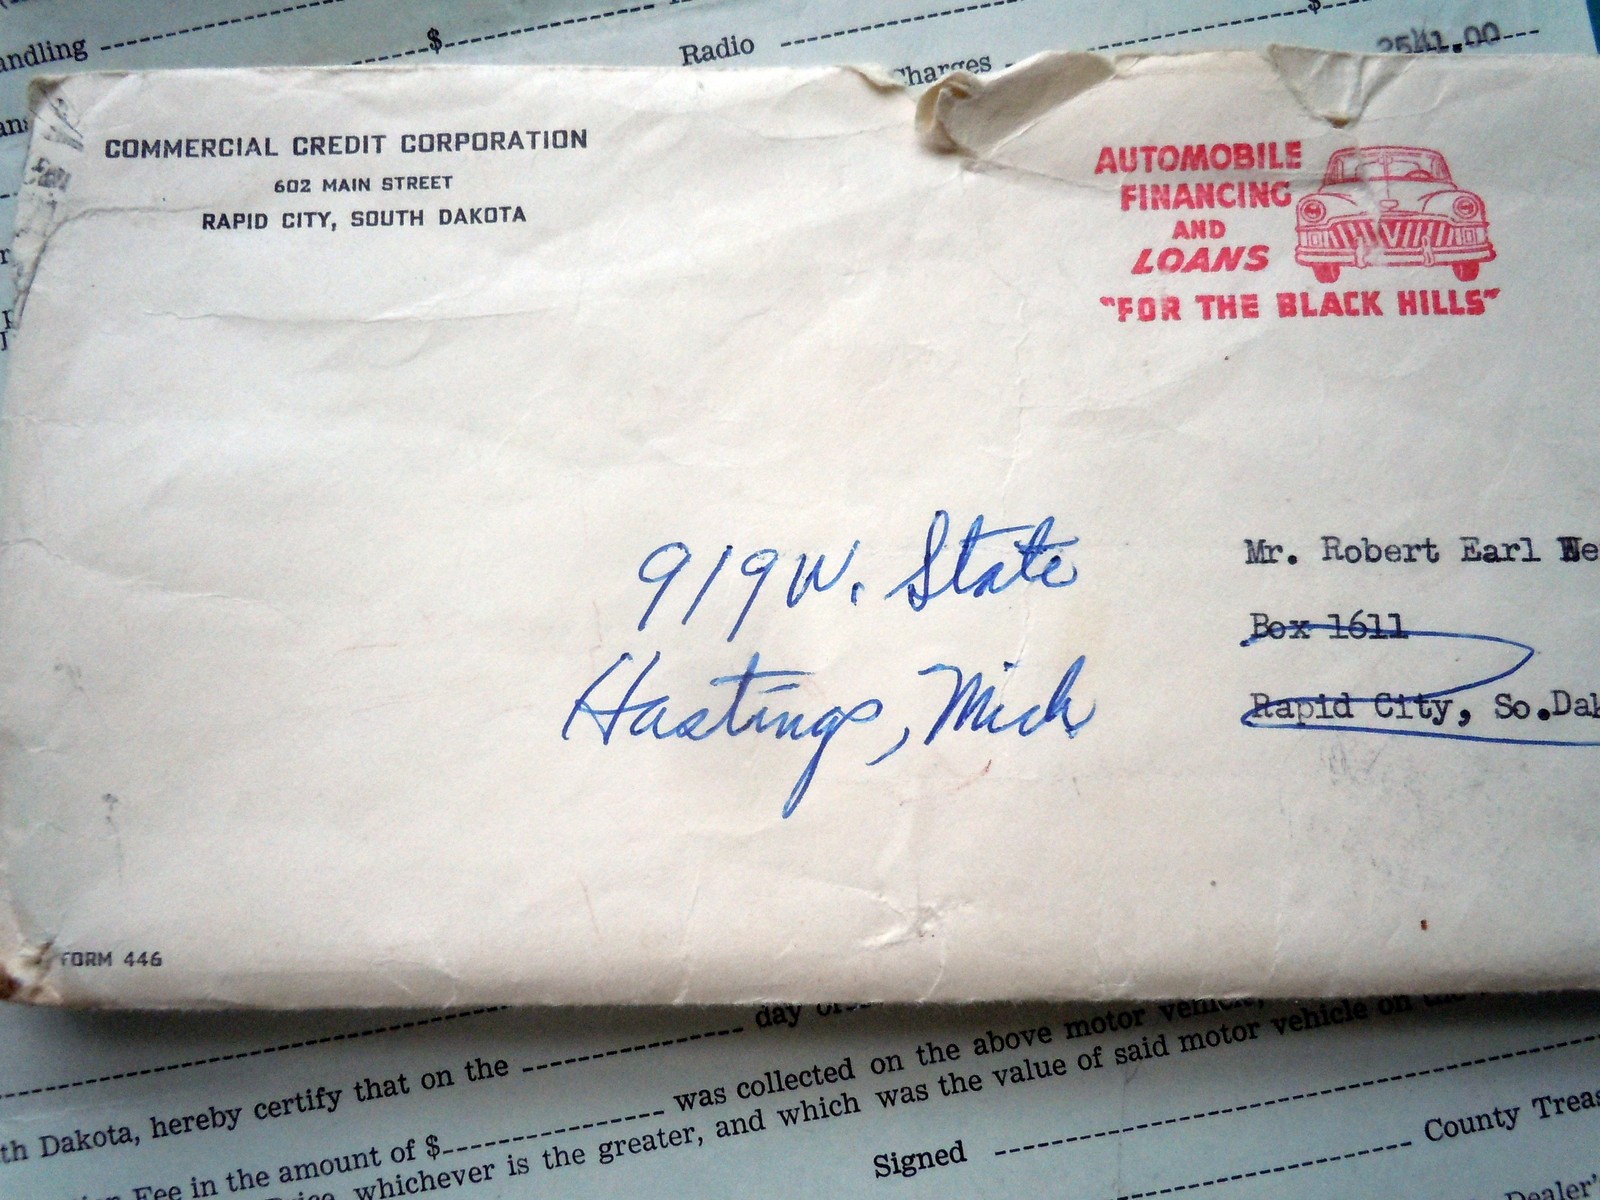 andling $
Radio $
Charges 2541.00
COMMERCIAL CREDIT CORPORATION
602 MAIN STREET
RAPID CITY, SOUTH DAKOTA
AUTOMOBILE
FINANCING
AND
LOANS
"FOR THE BLACK HILLS"
919 W. State
Hastings, Mich
Mr. Robert Earl We
Box 1611
Rapid City, So.Dak
FORM 446
day of
th Dakota, hereby certify that on the
was collected on the above motor vehicle,
Fee in the amount of $
whichever is the greater, and which was the value of said motor vehicle on the
Signed
County Treas
Dealer's